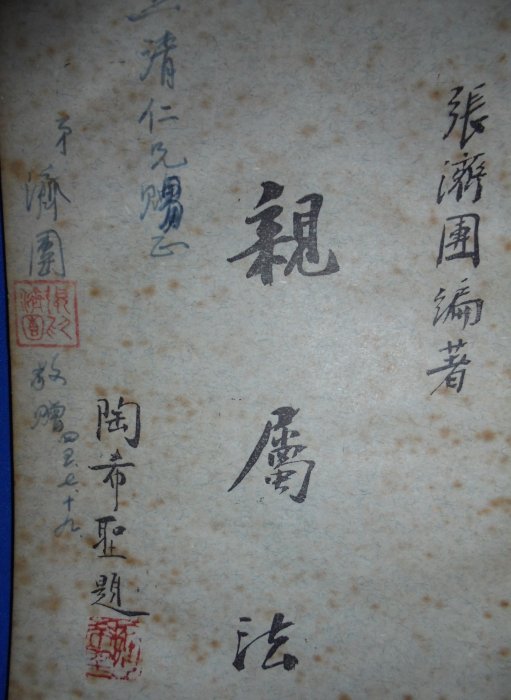 張濟團編著
親屬法
陶希聖題
清仁兄賜正
弟濟團
敬贈
四五、七、十九